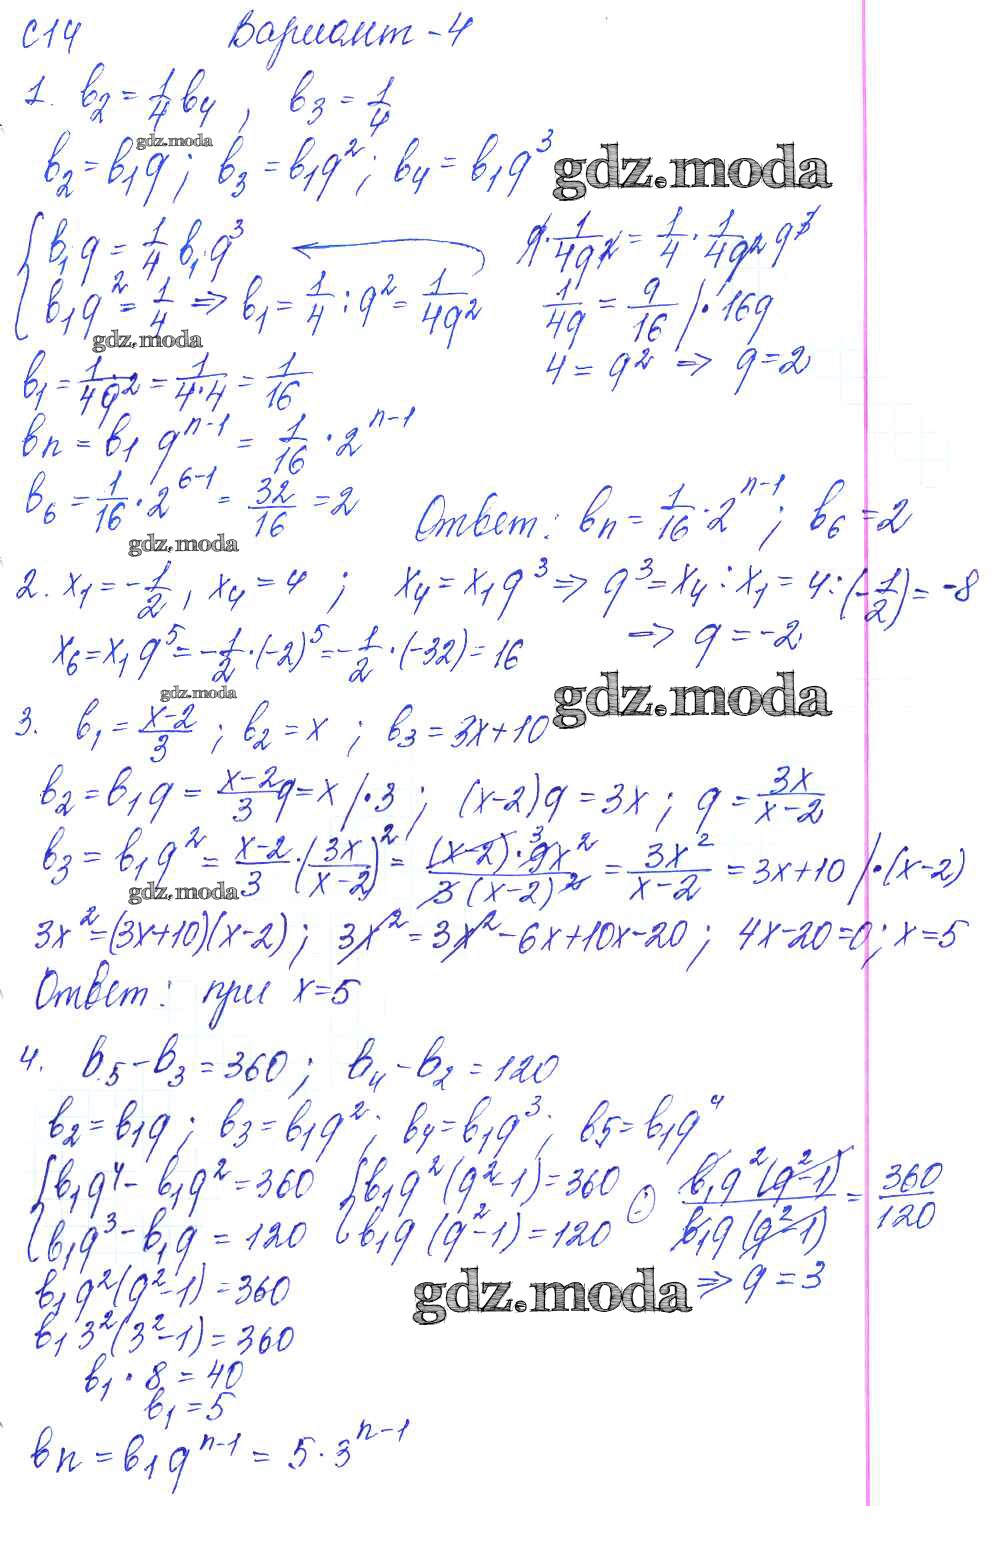 С14 Вариант-4
1. b₂ = 1/4 b₄ , b₃ = 1/4
gdz.moda
b₂ = b₁q ; b₃ = b₁q² ; b₄ = b₁q³
gdz.moda
{ b₁q = 1/4 b₁q³ q · 1/4q² = 1/4 · 1/4q² q³
b₁q² = 1/4 => b₁ = 1/4 : q² = 1/4q² 1/4q = q/16 | · 16q
gdz.moda
b₁ = 1/4q² = 1/4·4 = 1/16 4 = q² => q = 2
bn = b₁ qⁿ⁻¹ = 1/16 · 2ⁿ⁻¹
b₆ = 1/16 · 2⁶⁻¹ = 32/16 = 2 Ответ: bn = 1/16 · 2ⁿ⁻¹ ; b₆ = 2
gdz.moda
2. x₁ = -1/2 , x₄ = 4 ; x₄ = x₁q³ => q³ = x₄ : x₁ = 4 : (-1/2) = -8
x₆ = x₁q⁵ = -1/2 · (-2)⁵ = -1/2 · (-32) = 16 => q = -2
gdz.moda
gdz.moda
3. b₁ = x-2/3 ; b₂ = x ; b₃ = 3x+10
b₂ = b₁q = x-2/3 q = x | · 3 ; (x-2)q = 3x ; q = 3x/x-2
b₃ = b₁q² = x-2/3 · (3x/x-2)² = (x-2)·9³x²/3(x-2)² = 3x²/x-2 = 3x+10 | · (x-2)
gdz.moda
3x² = (3x+10)(x-2) ; 3x² = 3x² - 6x + 10x - 20 ; 4x - 20 = 0 ; x = 5
Ответ: при x = 5
4. b₅ - b₃ = 360 ; b₄ - b₂ = 120
b₂ = b₁q ; b₃ = b₁q² ; b₄ = b₁q³ ; b5 = b₁q⁴
{ b₁q⁴ - b₁q² = 360 { b₁q²(q²-1) = 360 (:) b₁q²(q²-1)/b₁q(q²-1) = 360/120
b₁q³ - b₁q = 120 b₁q(q²-1) = 120
b₁q²(q²-1) = 360 => q = 3
gdz.moda
b₁3²(3²-1) = 360
b₁ · 8 = 40
b₁ = 5
bn = b₁qⁿ⁻¹ = 5 · 3ⁿ⁻¹